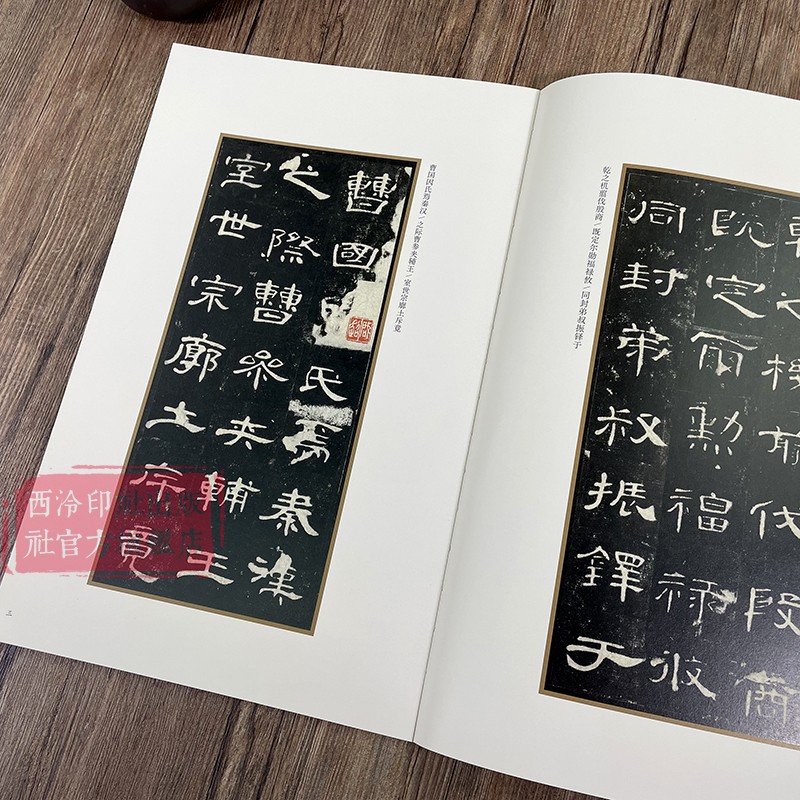 乾之機翦伐殷商
既定爾勲福祿攸
同封弟叔振鐸于
乾之机翦伐殷商/既定尔勋福禄攸/同封弟叔振铎于
曹國氏焉秦漢
之際曹參夾輔王
室世宗廓土斥竟
曹国因氏焉秦汉/之际曹参夹辅王/室世宗廓土斥竟
三
西泠印社出版
社官方旗舰店